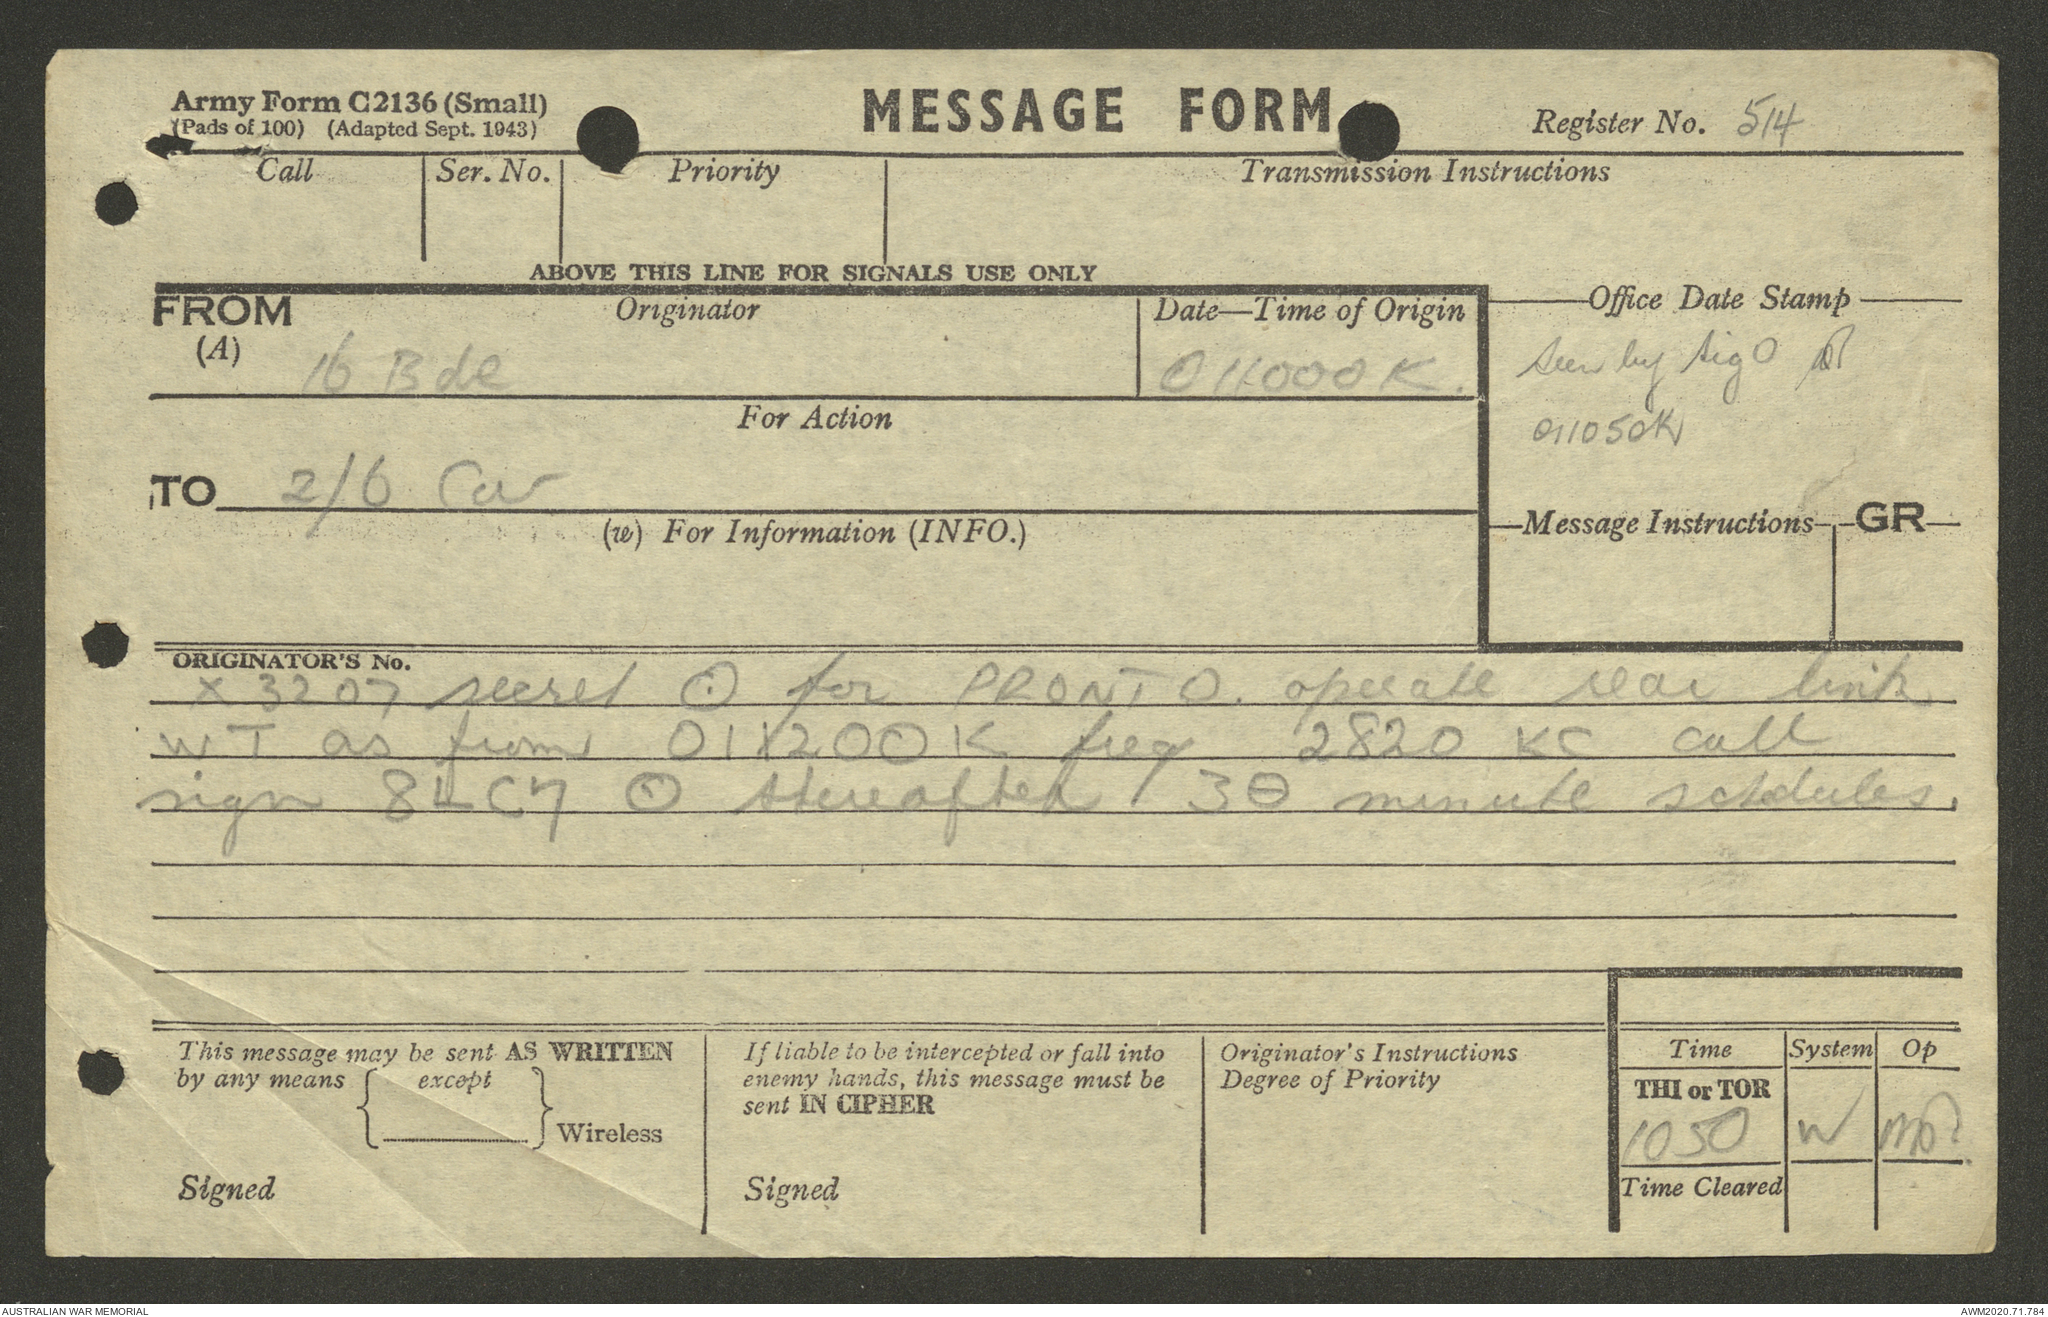 Army Form C2136 (Small)
(Pads of 100) (Adapted Sept. 1943)
MESSAGE FORM
Register No. 514
Call
Ser. No.
Priority
Transmission Instructions
ABOVE THIS LINE FOR SIGNALS USE ONLY
FROM
(A)
Originator
16 Bde
Date—Time of Origin
011000K.
Office Date Stamp
Seen by Sig O
011050K
For Action
TO 2/6 Cav
(w) For Information (INFO.)
Message Instructions
GR
ORIGINATOR'S No.
X3207 secret ⊙ for PRONTO. operate rear link
WT as from 011200K freq 2820 KC call
sign 8LC7 ⊙ thereafter 30 minute schdules.
This message may be sent AS WRITTEN
by any means { except } Wireless
Signed
If liable to be intercepted or fall into
enemy hands, this message must be
sent IN CIPHER
Signed
Originator's Instructions
Degree of Priority
Time
System
Op
THI or TOR
1050
W
Time Cleared
AUSTRALIAN WAR MEMORIAL
AWM2020.71.784